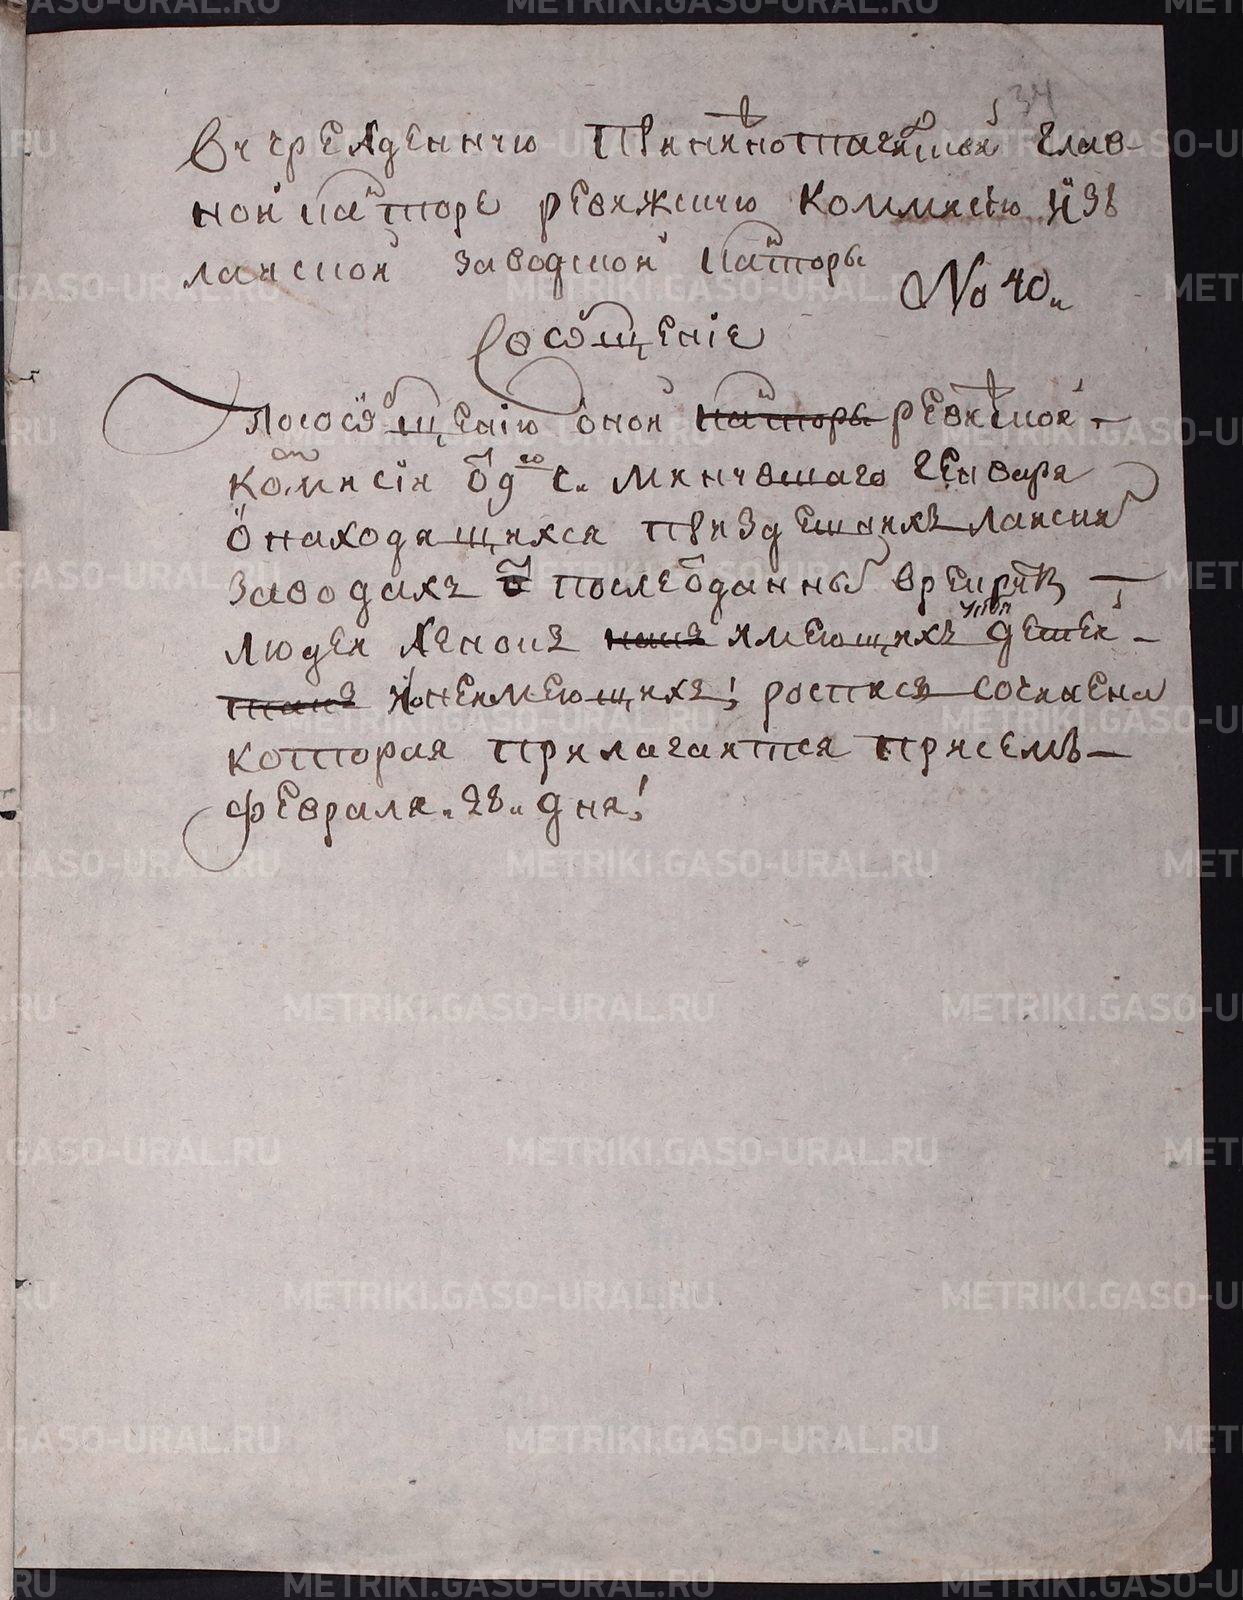 34
Вучрежденную при нижнотагилской глав-
ной канторе ревижскую коммисию изъ
лайской заводской канторы
№ 40.
Сообщение
Посообщению оной канторы ревиской
комисии от дго с. минувшаго генваря
онаходящихся приздешнихъ лайскихъ
заводахъ после отданных врекруты
людей женокъ имеющихъ детей
инеимеющихъ; росписъ сочинена
которая прилагаитса присемъ
февраля 28 дня!
METRIKI.GASO-URAL.RU